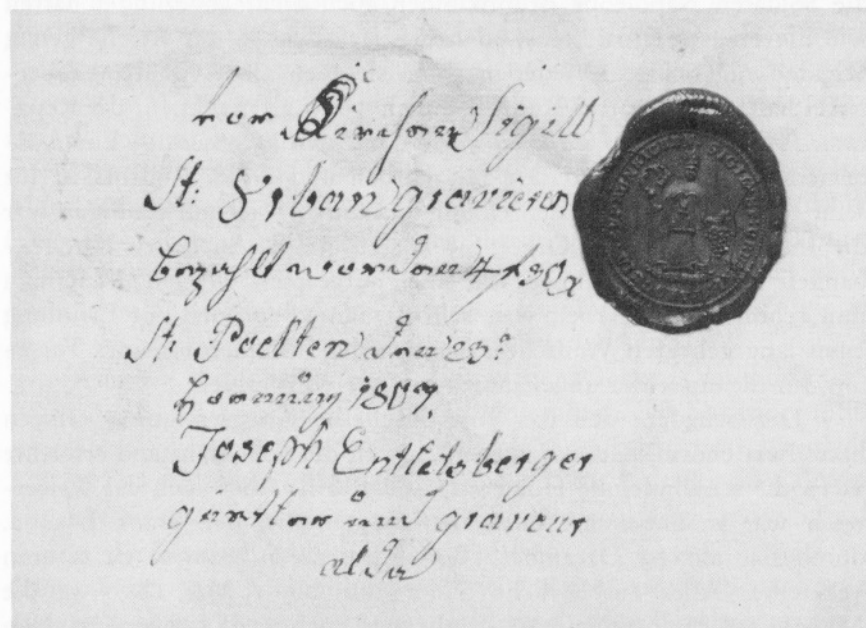 vor Kirchen Sigill
St: Urban gravieren
bezahlt worden 4 f 30 x
St: Poelten den 23:
hornung 1807.
Joseph Entletsberger
gürtler und graveur
alda